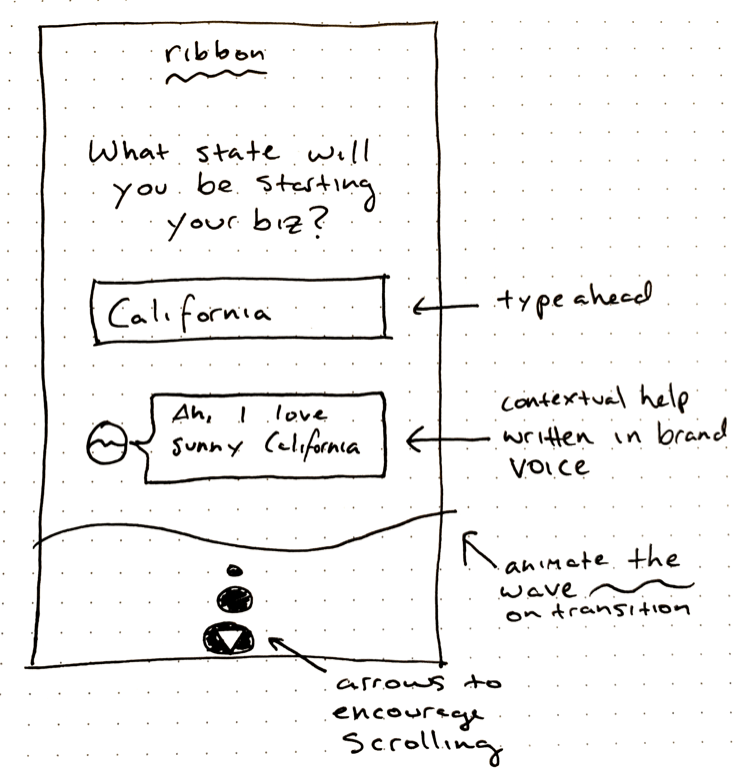 ribbon
What state will
you be starting
your biz?
California
typeahead
Ah, I love
sunny California
contextual help
written in brand
voice
animate the
wave
on transition
arrows to
encourage
scrolling